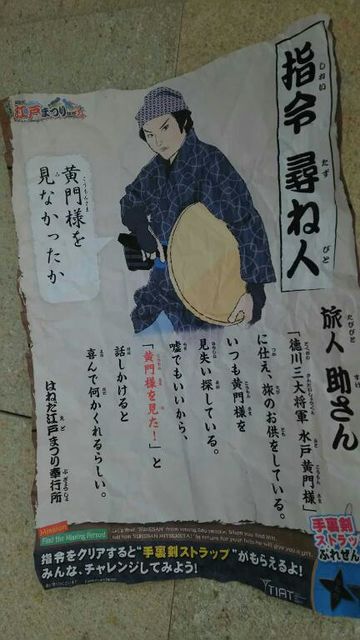 江戸まつり
指令 尋ね人
しれい たず びと
黄門様を
こうもんさま
見なかったか
旅人 助さん
たびびと すけ
「徳川三大将軍 水戸黄門様」
に仕え、旅のお供をしている。
いつも黄門様を
見失い探している。
嘘でもいいから、
「黄門様を見た！」と
話しかけると
喜んで何かくれるらしい。
はねだ江戸まつり奉行所
Mission
Find the Missing Person
指令をクリアすると"手裏剣ストラップ"がもらえるよ！
みんな、チャレンジしてみよう！
手裏剣
ストラップ
ぷれぜん
TIAT